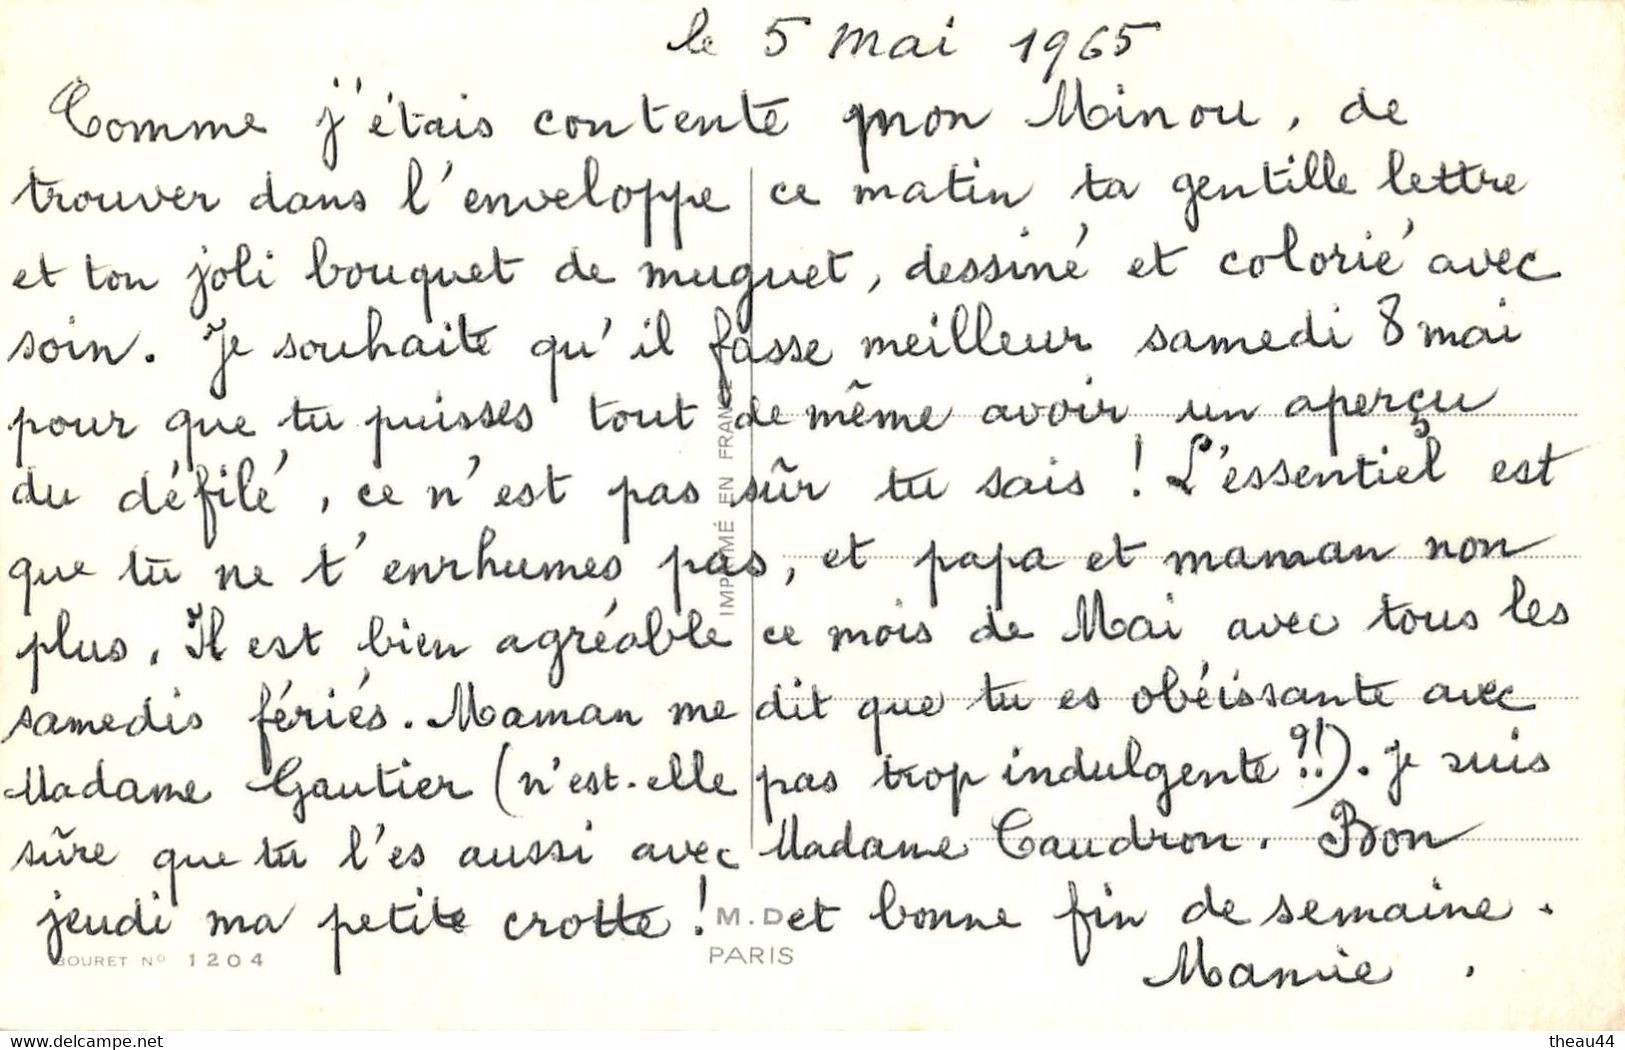 le 5 mai 1965
Comme j'étais contente mon Minou, de
trouver dans l'enveloppe ce matin ta gentille lettre
et ton joli bouquet de muguet, dessiné et colorié avec
soin. Je souhaite qu'il fasse meilleur samedi 8 mai
pour que tu puisses tout de même avoir un aperçu
du défilé, ce n'est pas sûr tu sais ! L'essentiel est
que tu ne t'enrhumes pas, et papa et maman non
plus. Il est bien agréable ce mois de Mai avec tous les
samedis fériés. Maman me dit que tu es obéissante avec
Madame Gautier (n'est-elle pas trop indulgente ?!). Je suis
sûre que tu l'es aussi avec Madame Caudron. Bon
jeudi ma petite crotte ! et bonne fin de semaine.
Mamie.
IMPRIMÉ EN FRANCE
M.D
PARIS
BOURET Nº 1204
www.delcampe.net
theau44